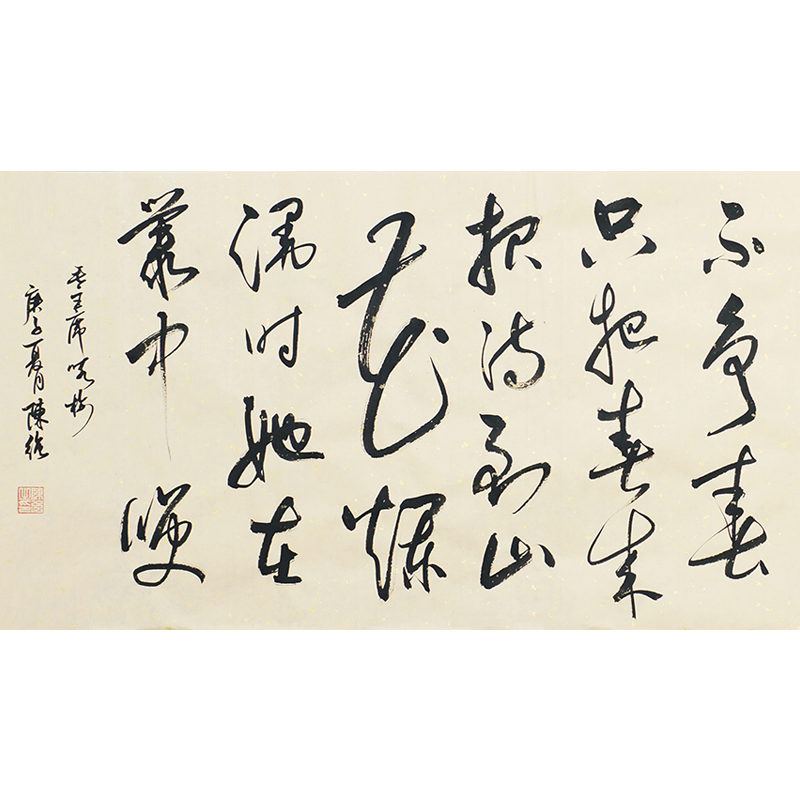 不争春
只把春来
报待到山
花爛
漫时她在
叢中咲
毛主席咏梅
庚子夏月陳